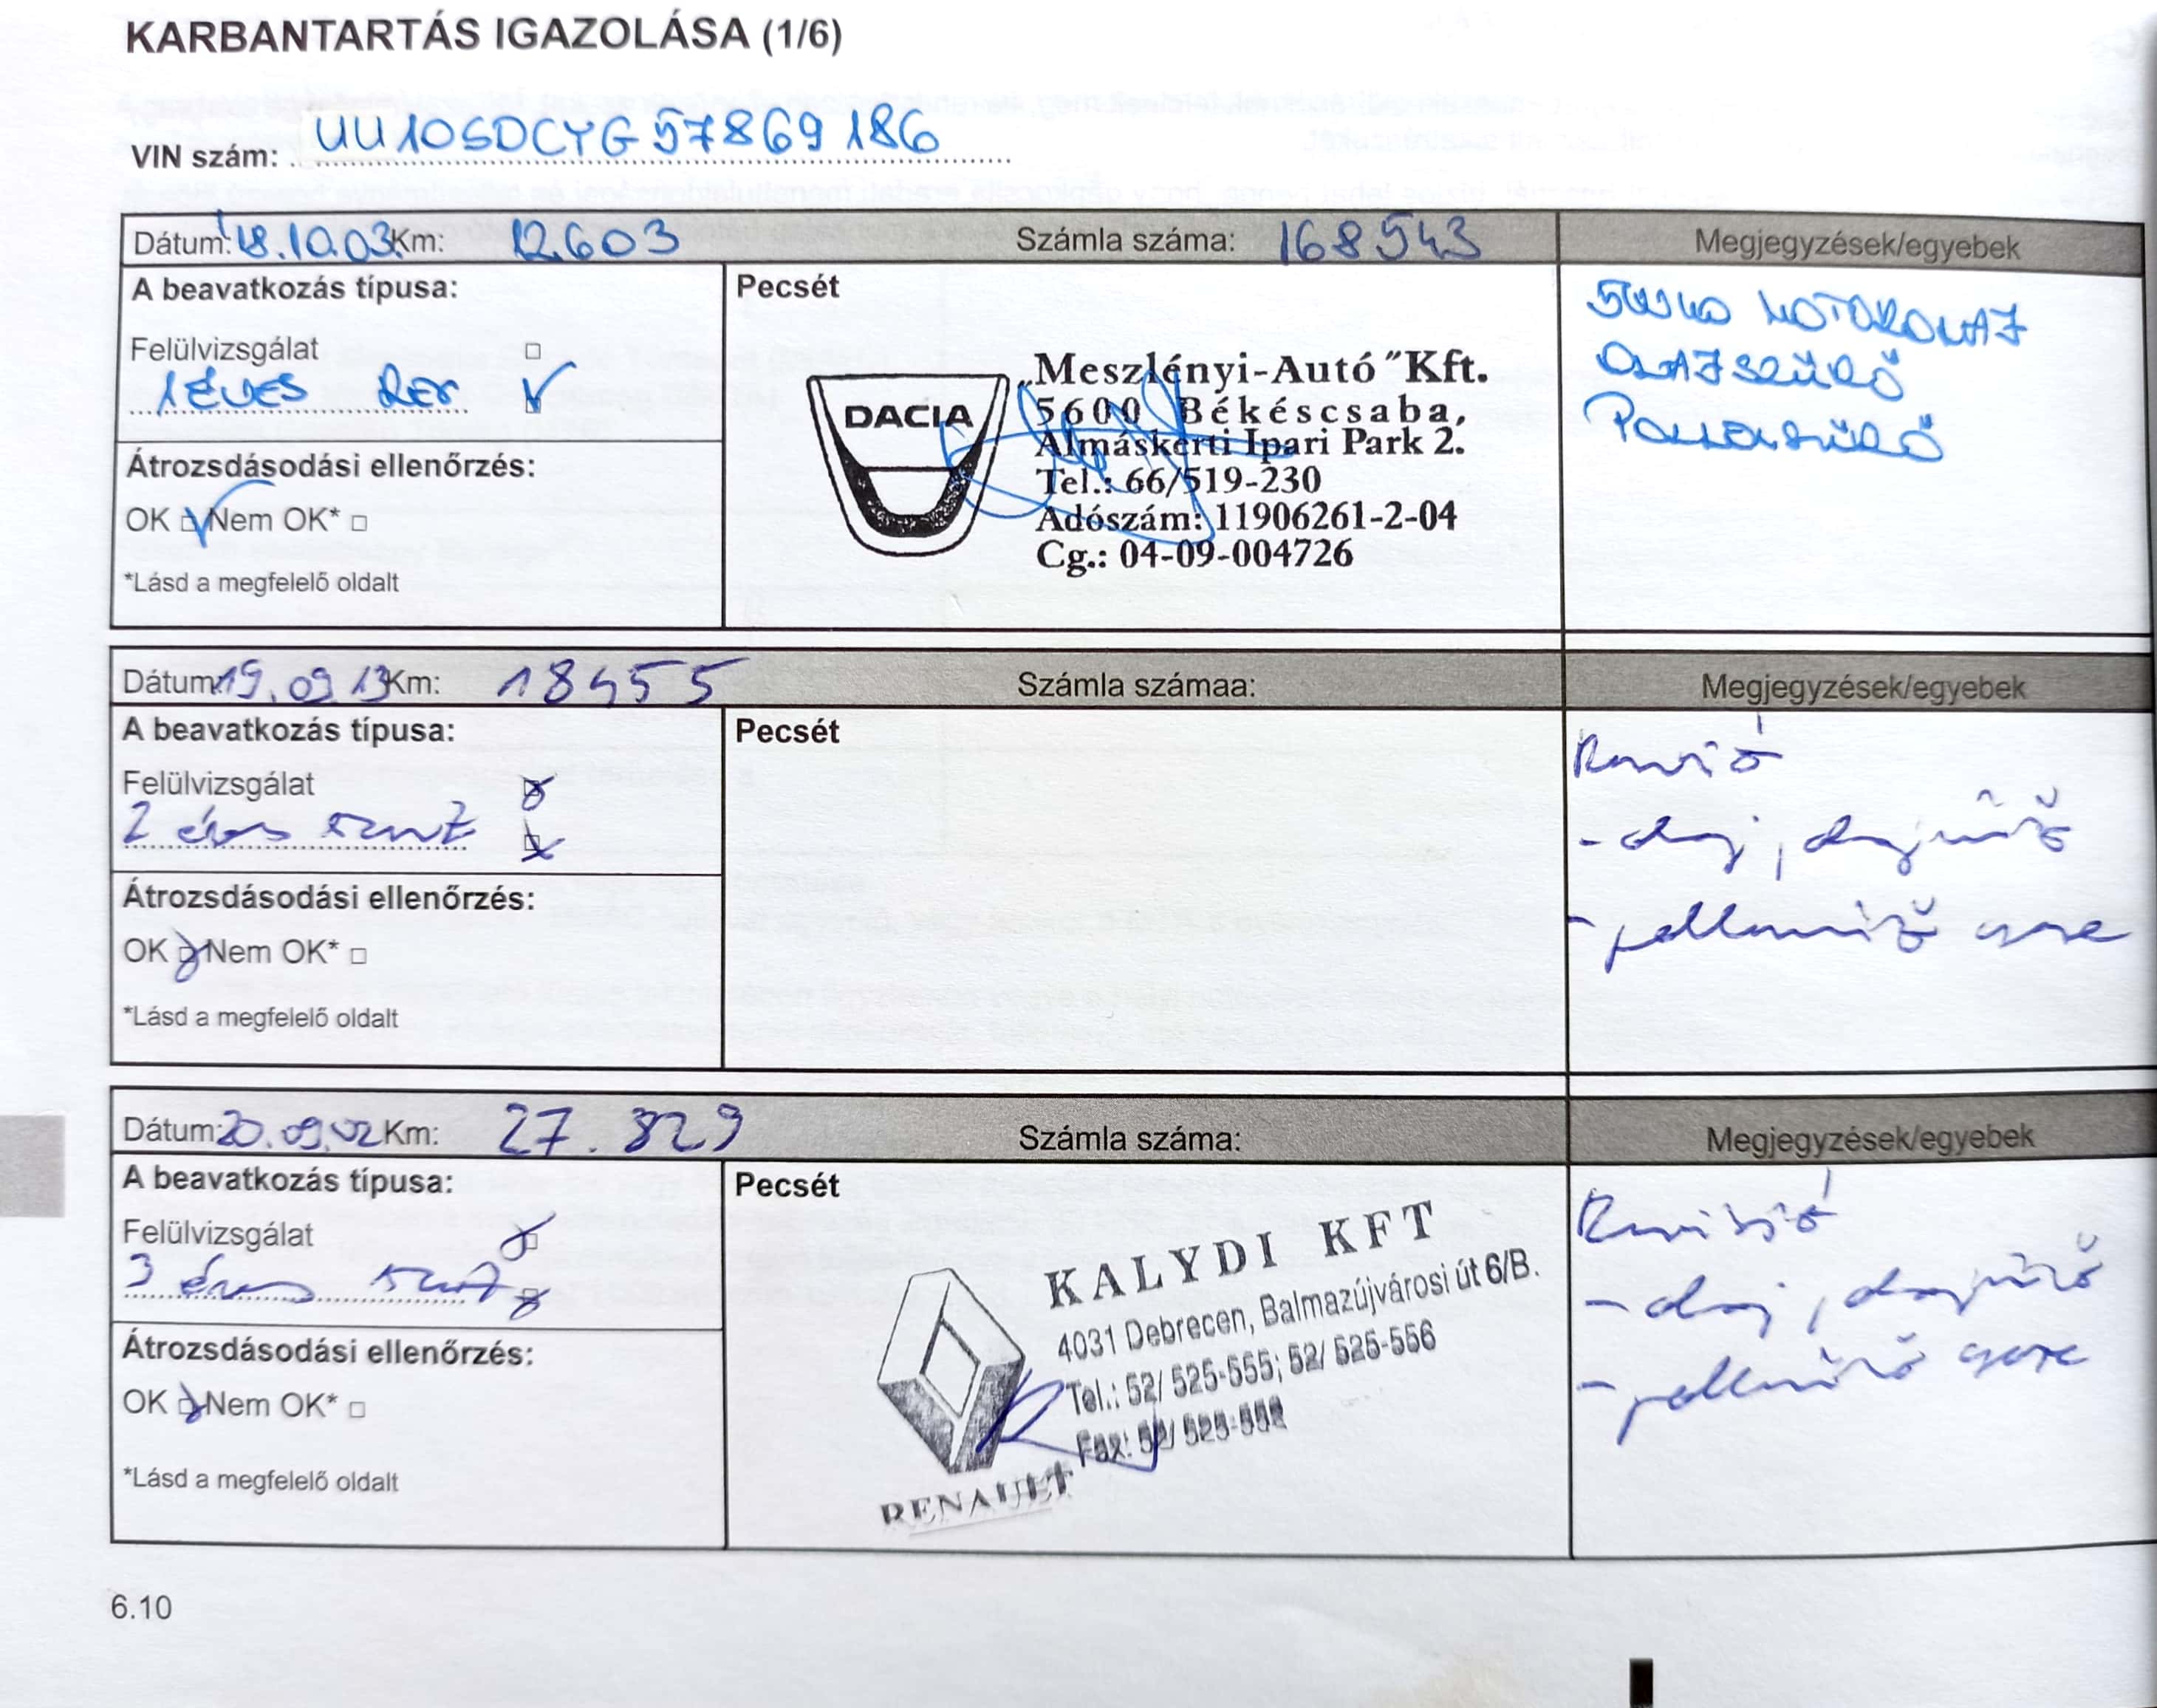 KARBANTARTÁS IGAZOLÁSA (1/6)
VIN szám: UU10SDCYG57869186
Dátum: 18.10.03 Km: 12603 Számla száma: 168543 Megjegyzések/egyebek
A beavatkozás típusa:
Felülvizsgálat
1 ÉVES
Átrozsdásodási ellenőrzés:
OK Nem OK*
*Lásd a megfelelő oldalt
Pecsét
DACIA
„Meszlényi-Autó"Kft.
5600 Békéscsaba,
Almáskerti Ipari Park 2.
Tel.: 66/519-230
Adószám: 11906261-2-04
Cg.: 04-09-004726
MOTOROLAJ
OLAJSZŰRŐ
POLLENSZŰRŐ
Dátum: 19.09.13 Km: 18455 Számla számaa: Megjegyzések/egyebek
A beavatkozás típusa:
Felülvizsgálat
2 éves szerviz
Átrozsdásodási ellenőrzés:
OK Nem OK*
*Lásd a megfelelő oldalt
Pecsét
- olaj, olajszűrő
- pollenszűrő csere
Dátum: 20.09.02 Km: 27.829 Számla száma: Megjegyzések/egyebek
A beavatkozás típusa:
Felülvizsgálat
3 éves szerviz
Átrozsdásodási ellenőrzés:
OK Nem OK*
*Lásd a megfelelő oldalt
Pecsét
KALYDI KFT
4031 Debrecen, Balmazújvárosi út 6/B.
Tel.: 52/ 525-555; 52/ 525-556
Fax: 52/
RENAULT
- olaj, olajszűrő
- pollenszűrő csere
6.10